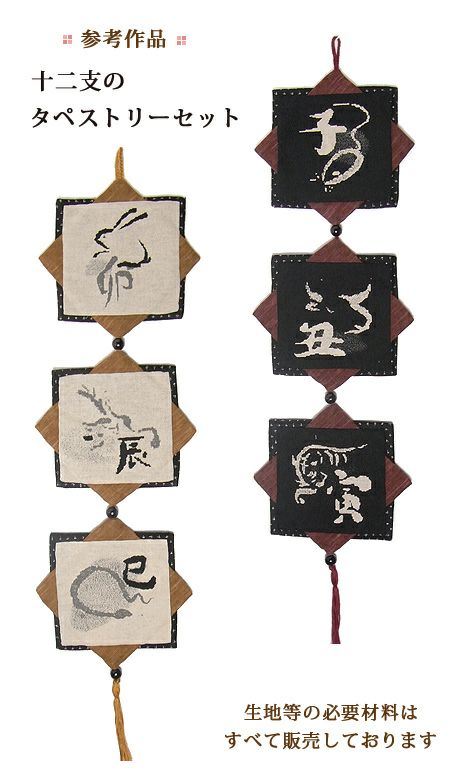 参考作品
十二支の
タペストリーセット
子
丑
寅
卯
辰
巳
生地等の必要材料は
すべて販売しております